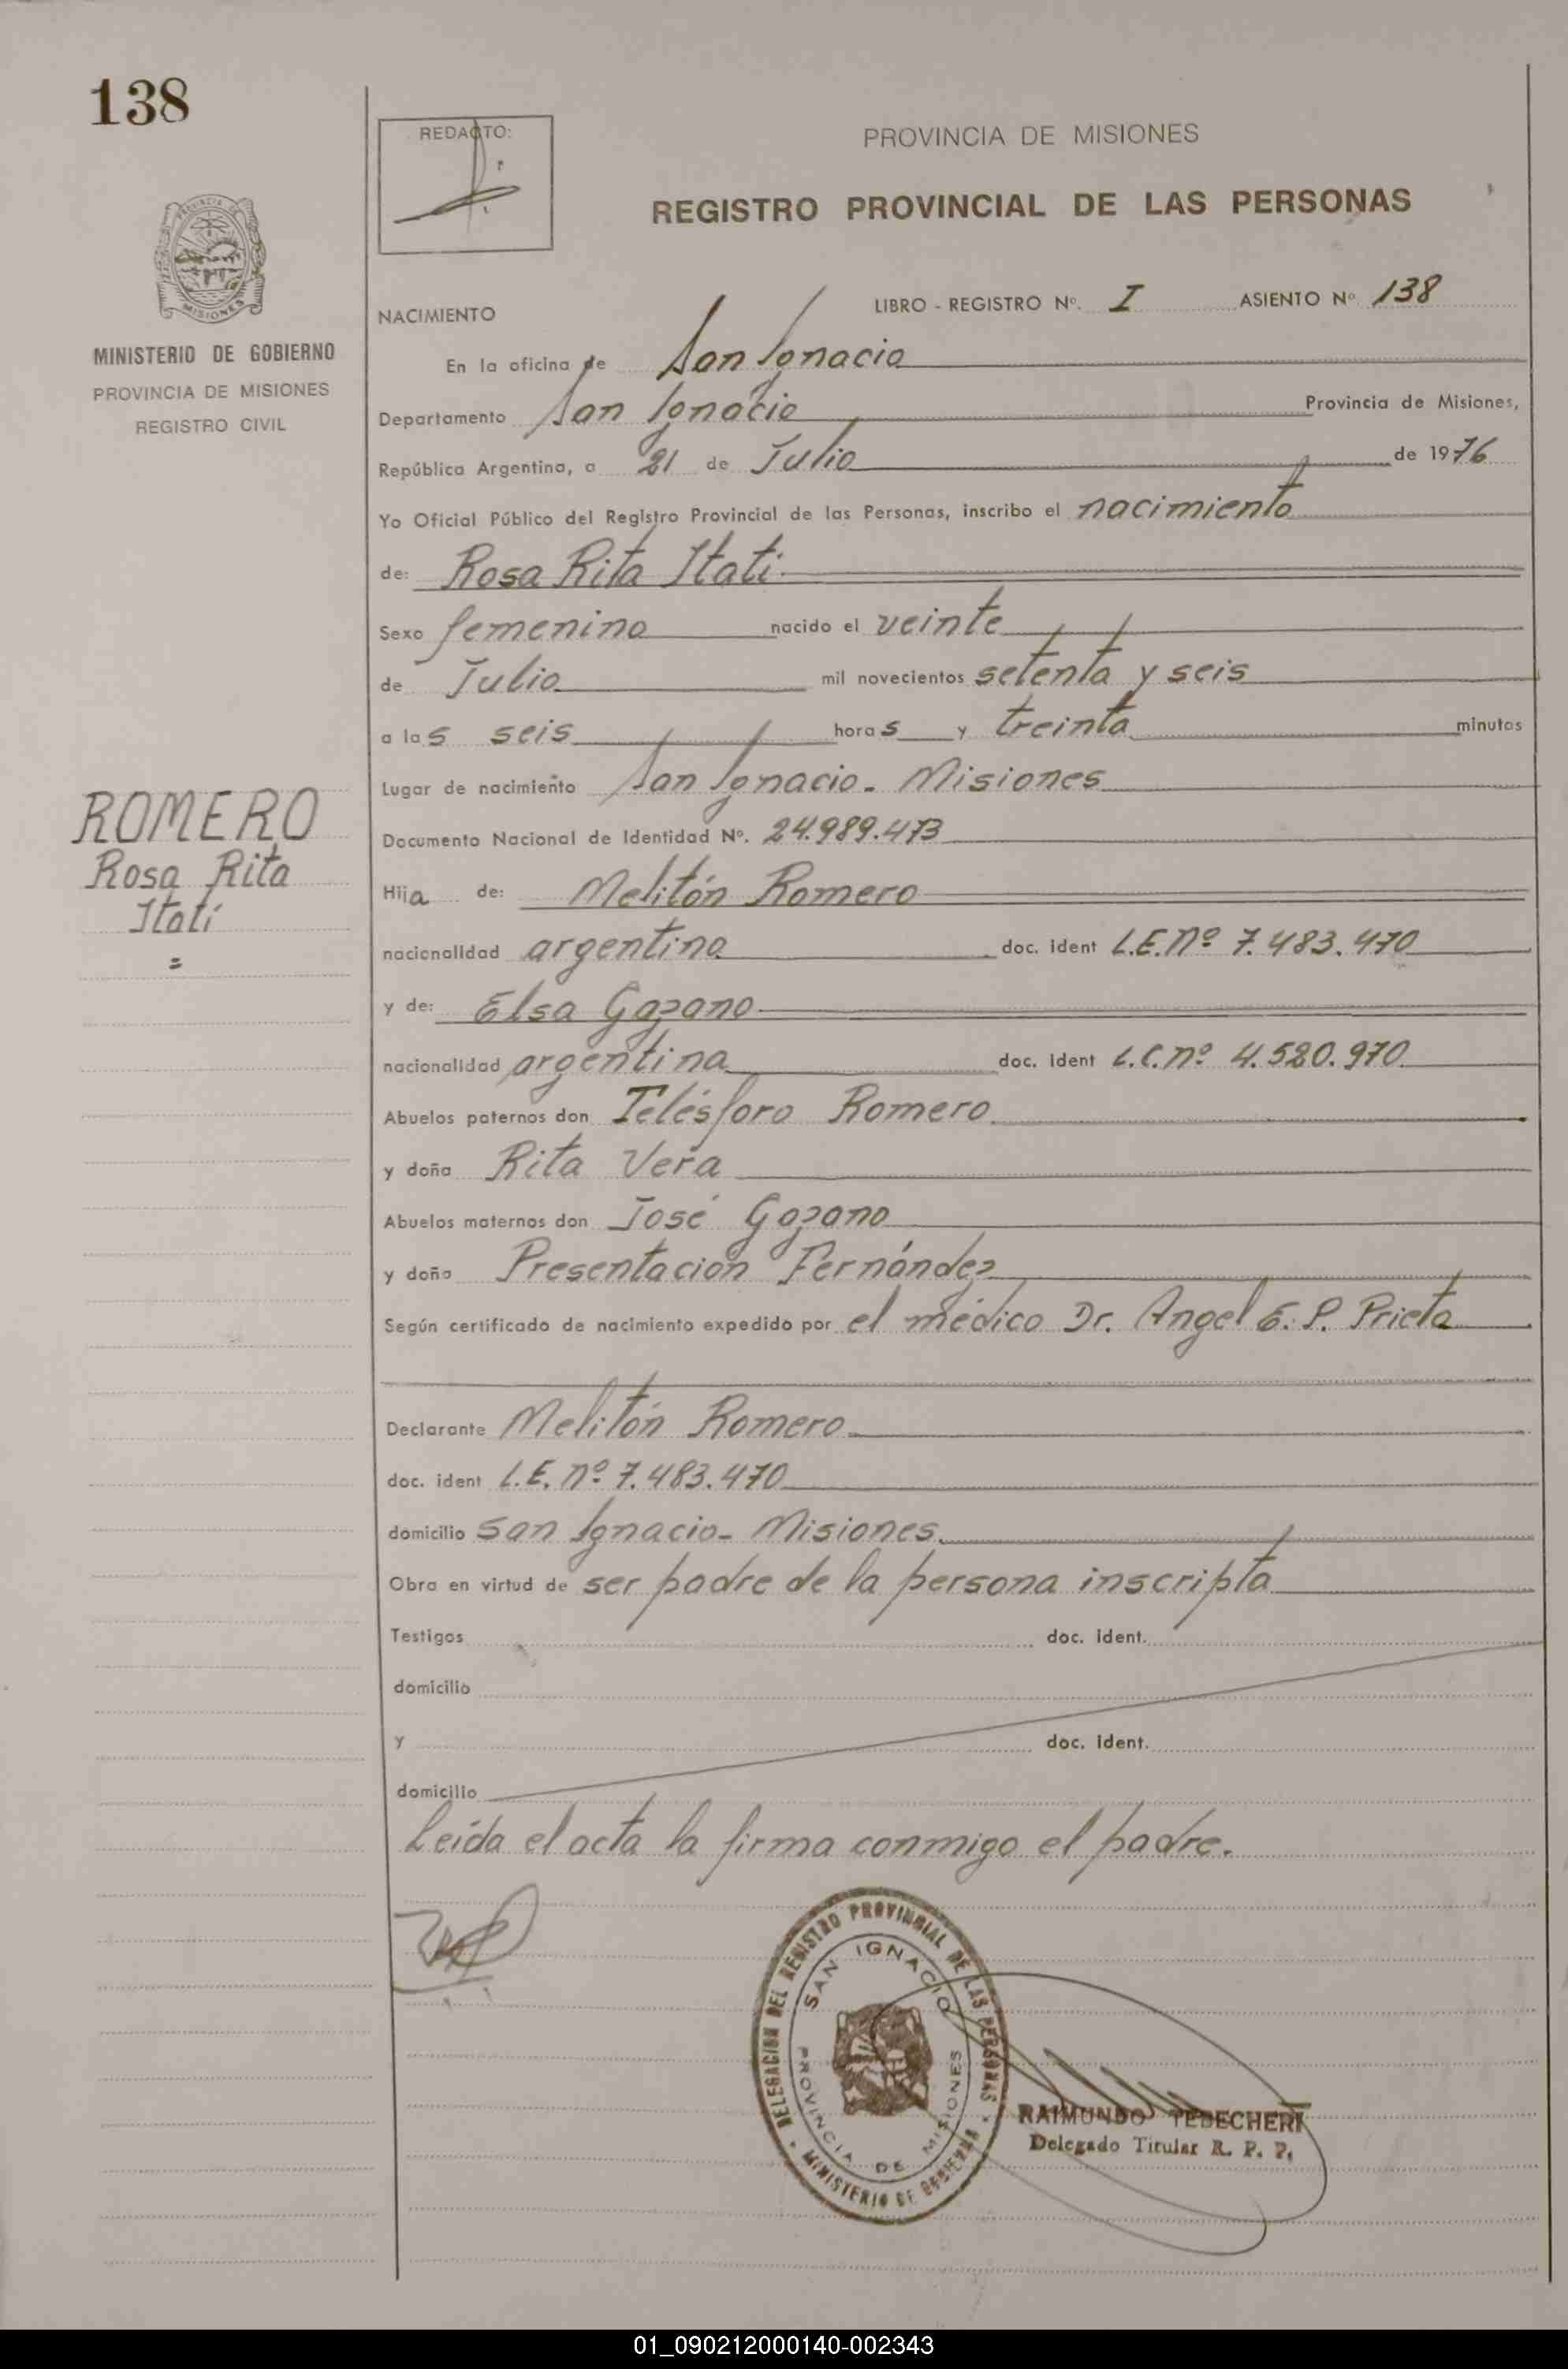 138
REDACTO:
PROVINCIA DE MISIONES
REGISTRO PROVINCIAL DE LAS PERSONAS
PROVINCIA DE
MISIONES
MINISTERIO DE GOBIERNO
PROVINCIA DE MISIONES
REGISTRO CIVIL
NACIMIENTO
LIBRO - REGISTRO Nº. I ASIENTO Nº 138
En la oficina de San Ignacio
Departamento San Ignacio Provincia de Misiones,
República Argentina, a 21 de Julio de 1976
Yo Oficial Público del Registro Provincial de las Personas, inscribo el nacimiento
de: Rosa Rita Itatí.
Sexo femenino nacido el veinte
de Julio mil novecientos setenta y seis
a las seis horas y treinta minutos
Lugar de nacimiento San Ignacio - Misiones
ROMERO
Rosa Rita
Itatí
=
Documento Nacional de Identidad Nº. 24.989.473
Hija de: Melitón Romero
nacionalidad argentino doc. ident L.E. nº 7.483.470
y de: Elsa Gazano
nacionalidad argentina doc. ident L.C. nº 4.520.970
Abuelos paternos don Telésforo Romero
y doña Rita Vera
Abuelos maternos don José Gazano
y doña Presentación Fernández
Según certificado de nacimiento expedido por el médico Dr. Angel E. P. Prieto
Declarante Melitón Romero
doc. ident L.E. nº 7.483.470
domicilio San Ignacio - Misiones.
Obra en virtud de ser padre de la persona inscripta
Testigos doc. ident.
domicilio
y doc. ident.
domicilio
Leída el acta la firma conmigo el padre.
DELEGACION DEL REGISTRO PROVINCIAL DE LAS PERSONAS
SAN IGNACIO
PROVINCIA DE MISIONES
MINISTERIO DE GOBIERNO
RAIMUNDO TEDECHERI
Delegado Titular R. P. P.
01_090212000140-002343